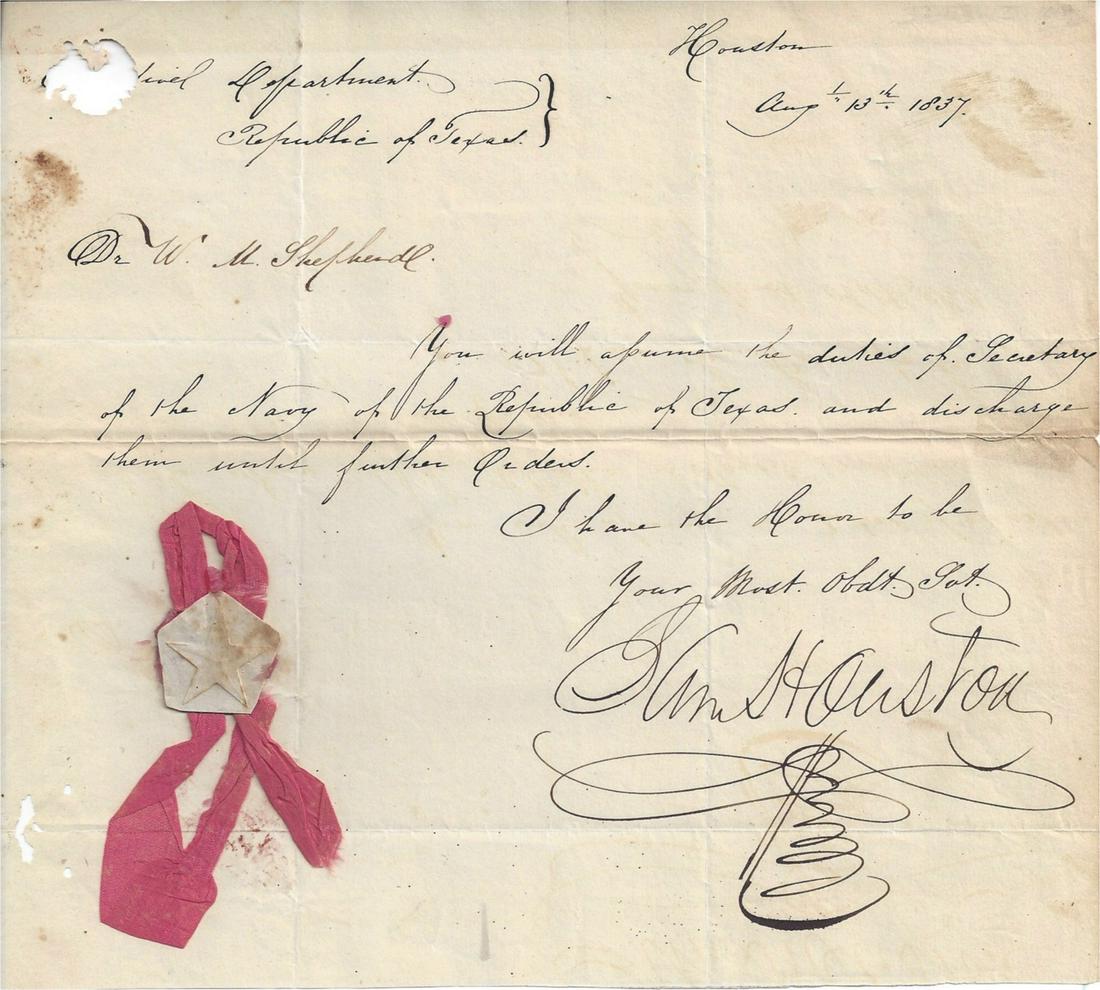 Houston
Augt 13th 1837.
Department
Republic of Texas.
Dr W. M. Shepherd.
You will assume the duties of Secretary
of the Navy of the Republic of Texas. and discharge
them until further Orders.
I have the Honor to be
Your Most. Obdt. Svt.
Sam Houston